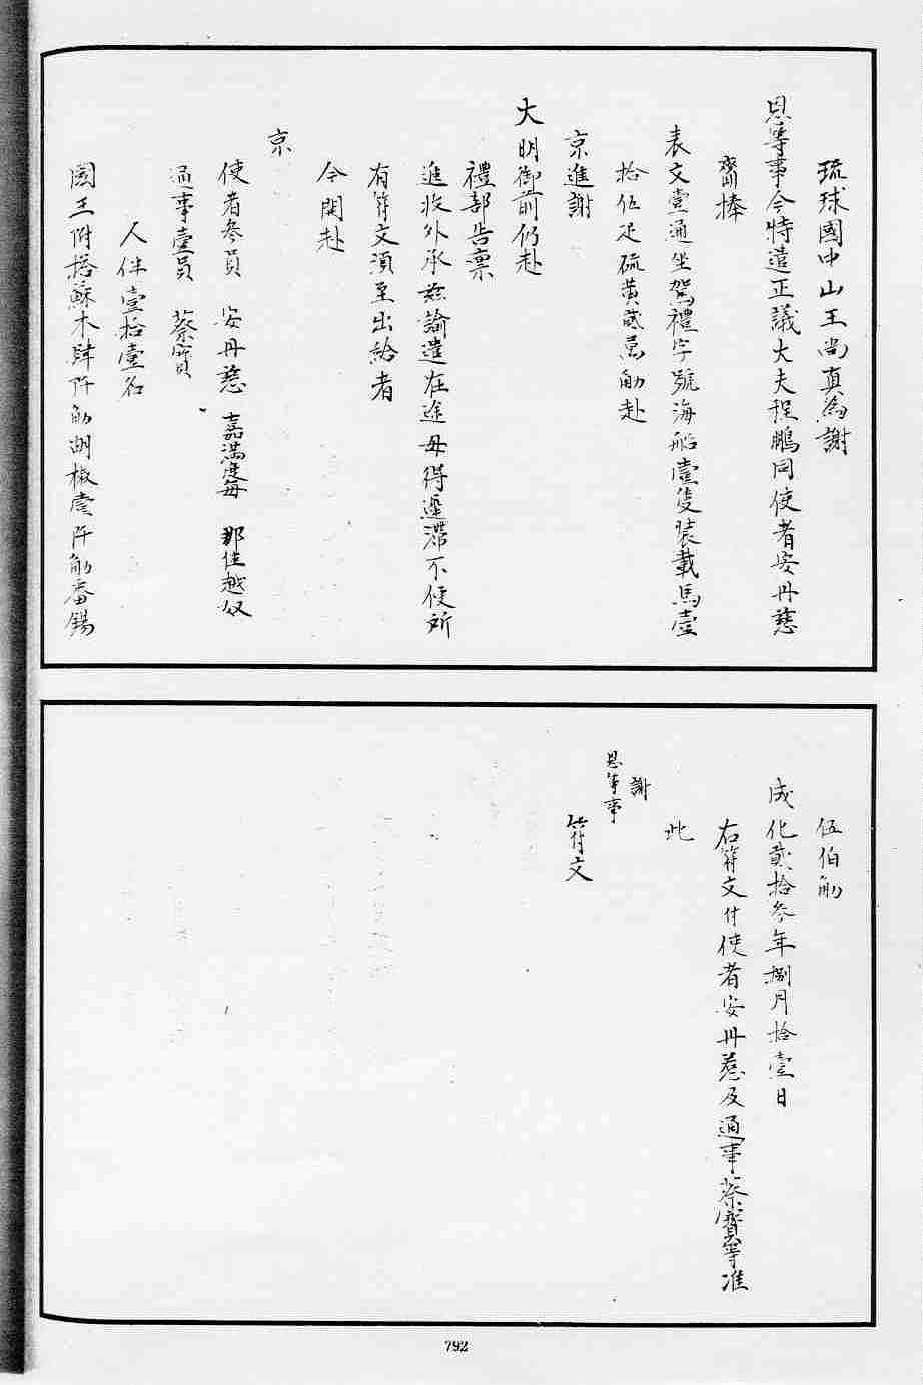 琉球國中山王尚真為謝
恩等事今特遣正議大夫程鵬同使者安丹慈
齎捧
表文壹通坐駕禮字號海船壹隻裝載馬壹
拾伍疋硫黃貳萬觔赴
京進謝
大明御前仍赴
禮部告稟
進收外承玆諭遣在途毋得遲滯不便所
有符文須至出給者
今開赴
京
使者叁員 安丹慈 嘉滿度每 那佳越奴
通事壹員 蔡賓
人伴壹拾壹名
國王附搭蘇木肆阡觔胡椒壹阡觔番錫
伍伯觔
成化貳拾叁年捌月拾壹日
右符文付使者安丹慈及通事蔡賓等准
此
謝
恩等事
符文
792